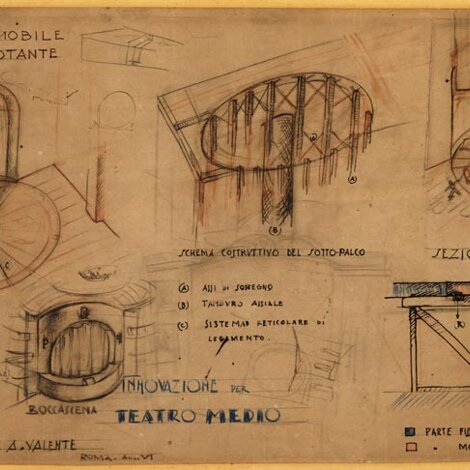 MOBILE
OTANTE
C
A
B
D
SCHEMA COSTRUTTIVO DEL SOTTO-PALCO
SEZIO
A ASSI DI SOSTEGNO
B TAMBURO ASSIALE
C SISTEMA RETICOLARE DI
LEGAMENTO.
R
P
BOCCASCENA
INNOVAZIONE PER
TEATRO MEDIO
A. VALENTE
ROMA. Anno VI
PARTE FI
" MO